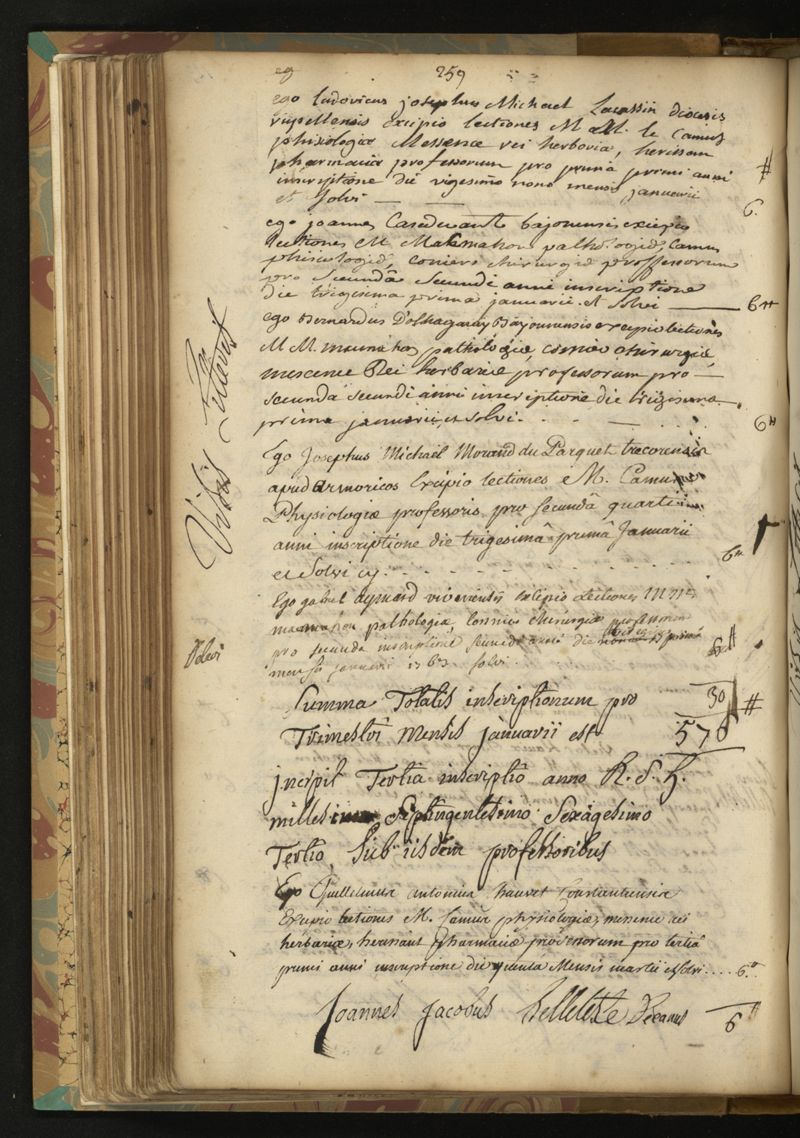 259
ego ludovicus josephus Michael Lacassin diocesis
rupellensis excipio lectiones M M. le Camus
phisiologiæ Messenæ rei herboriæ, herissam
pharmaciæ professorum pro primâ primi anni
inscriptione die vigesimo nono mensis januarii
et solvi — — 6.
ego joannes bajonensis excipio
Lectiones M. Makmahon pathologiæ, Camus
phisiologiæ, chirurgiæ proffessorum
pro secundâ secundi anni inscriptione
die trigesima primâ januarii et solvi — 6#
ego Bernardus D'olhagaray Bayonnensis excipio lectiones
M M. pathologiæ chirurgiæ
Rei herbariæ professorum pro
secunda secundi anni inscriptione die
prima januarii et solvi. 6#
Ego Josephus Michaël Morand du Parquet trecorensis
apud armoricos Excipio lectiones M. Camus
Physiologiæ professoris pro secundâ quarti
anni inscriptione die trigesimâ primâ Januarii
et Solvi 6#
Ego gabriel aymard excipio Lectiones M M
pathologiæ, chirurgiæ
pro secunda inscriptione secundi anni die
mensis januarii 1763 solvi 6#
Solvi
Summa Totalis inscriptionum pro 30#
Trimestri Mensis januarii est 570
Vidit Rector
incipit Tertia inscriptio anno R. S. H.
millesimo Septingentesimo Sexagesimo
Tertio Sub iisdem professoribus
Ego Guillelmus antonius hauvet Constantiensis
Excipio lectiones M. Camus physiologiæ, rei
herbariæ, pharmaciæ professorum pro tertiâ
primi anni inscriptione die quintâ Mensis martii et solvi .... 6#
Joannes Jacobus Belleteste Decanus 6#